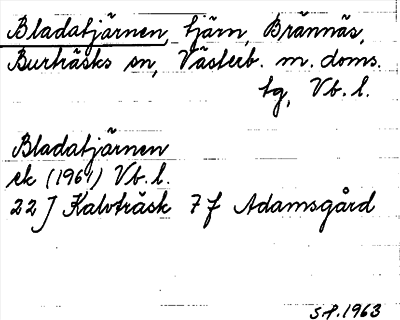 Bladatjärnen, tjärn, Brännäs,
Burträsks sn, Västerb. m. doms.
tg, Vb. l.
Bladatjärnen
ek (1961) Vb. l.
22 J Kalvträsk 7 f Adamsgård
S.P. 1963